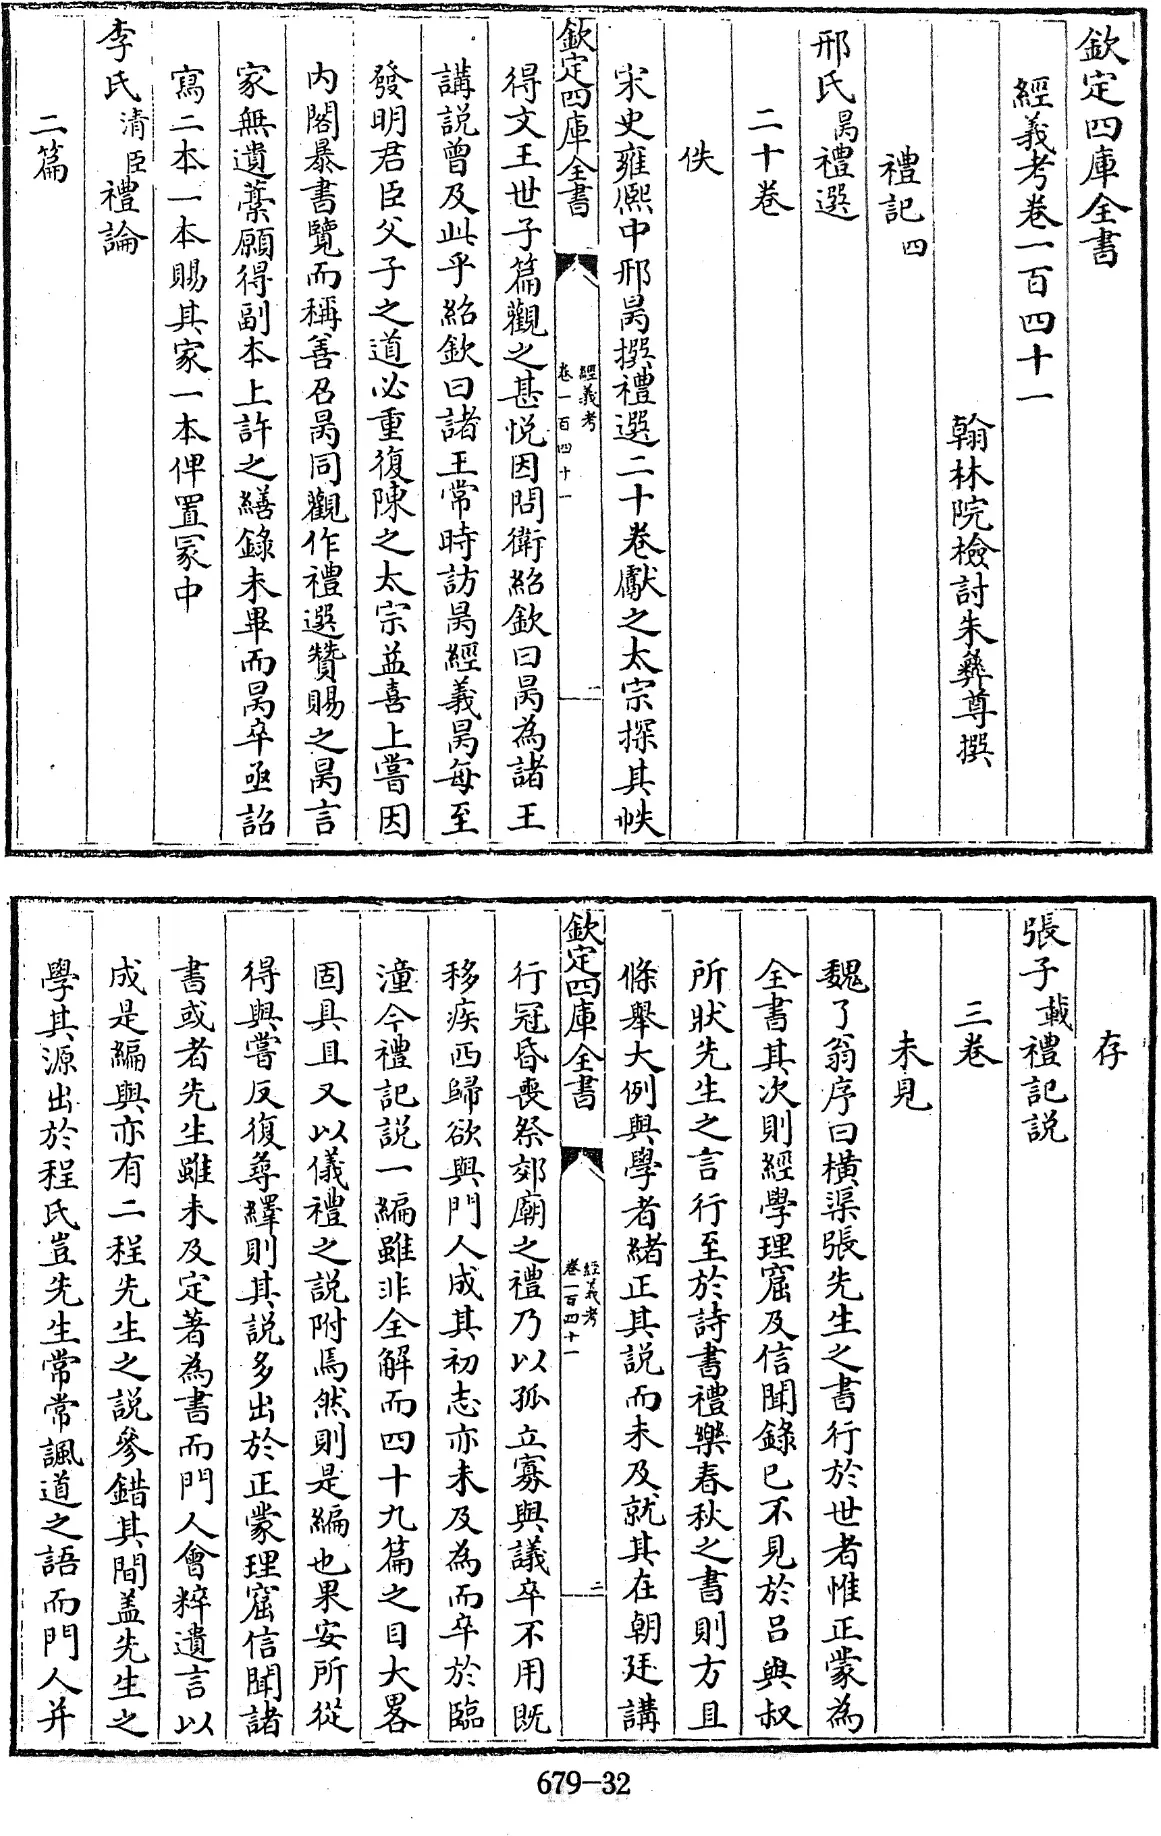 欽定四庫全書
經義考卷一百四十一
翰林院檢討朱彝尊撰
禮記四
邢氏昺禮選
二十卷
佚
宋史雍熈中邢昺撰禮選二十卷獻之太宗探其帙
欽定四庫全書
經義考
卷一百四十一
一
得文王世子篇觀之甚悦因問衛紹欽曰昺為諸王
講説曾及此乎紹欽曰諸王常時訪昺經義昺每至
發明君臣父子之道必重復陳之太宗益喜上嘗因
内閣暴書覽而稱善召昺同觀作禮選贊賜之昺言
家無遺藁願得副本上許之繕錄未畢而昺卒亟詔
寫二本一本賜其家一本俾置冢中
李氏清臣禮論
二篇
存
張子載禮記説
三卷
未見
魏了翁序曰橫渠張先生之書行於世者惟正蒙為
全書其次則經學理窟及信聞錄已不見於吕與叔
所狀先生之言行至於詩書禮樂春秋之書則方且
條舉大例與學者緒正其説而未及就其在朝廷講
欽定四庫全書
經義考
卷一百四十一
二
行冠昏喪祭郊廟之禮乃以孤立寡與議卒不用既
移疾西歸欲與門人成其初志亦未及為而卒於臨
潼今禮記説一編雖非全解而四十九篇之目大畧
固具且又以儀禮之説附焉然則是編也果安所從
得與嘗反復尋繹則其説多出於正蒙理窟信聞諸
書或者先生雖未及定著為書而門人會粹遺言以
成是編與亦有二程先生之説參錯其間盖先生之
學其源出於程氏豈先生常常諷道之語而門人并
679-32